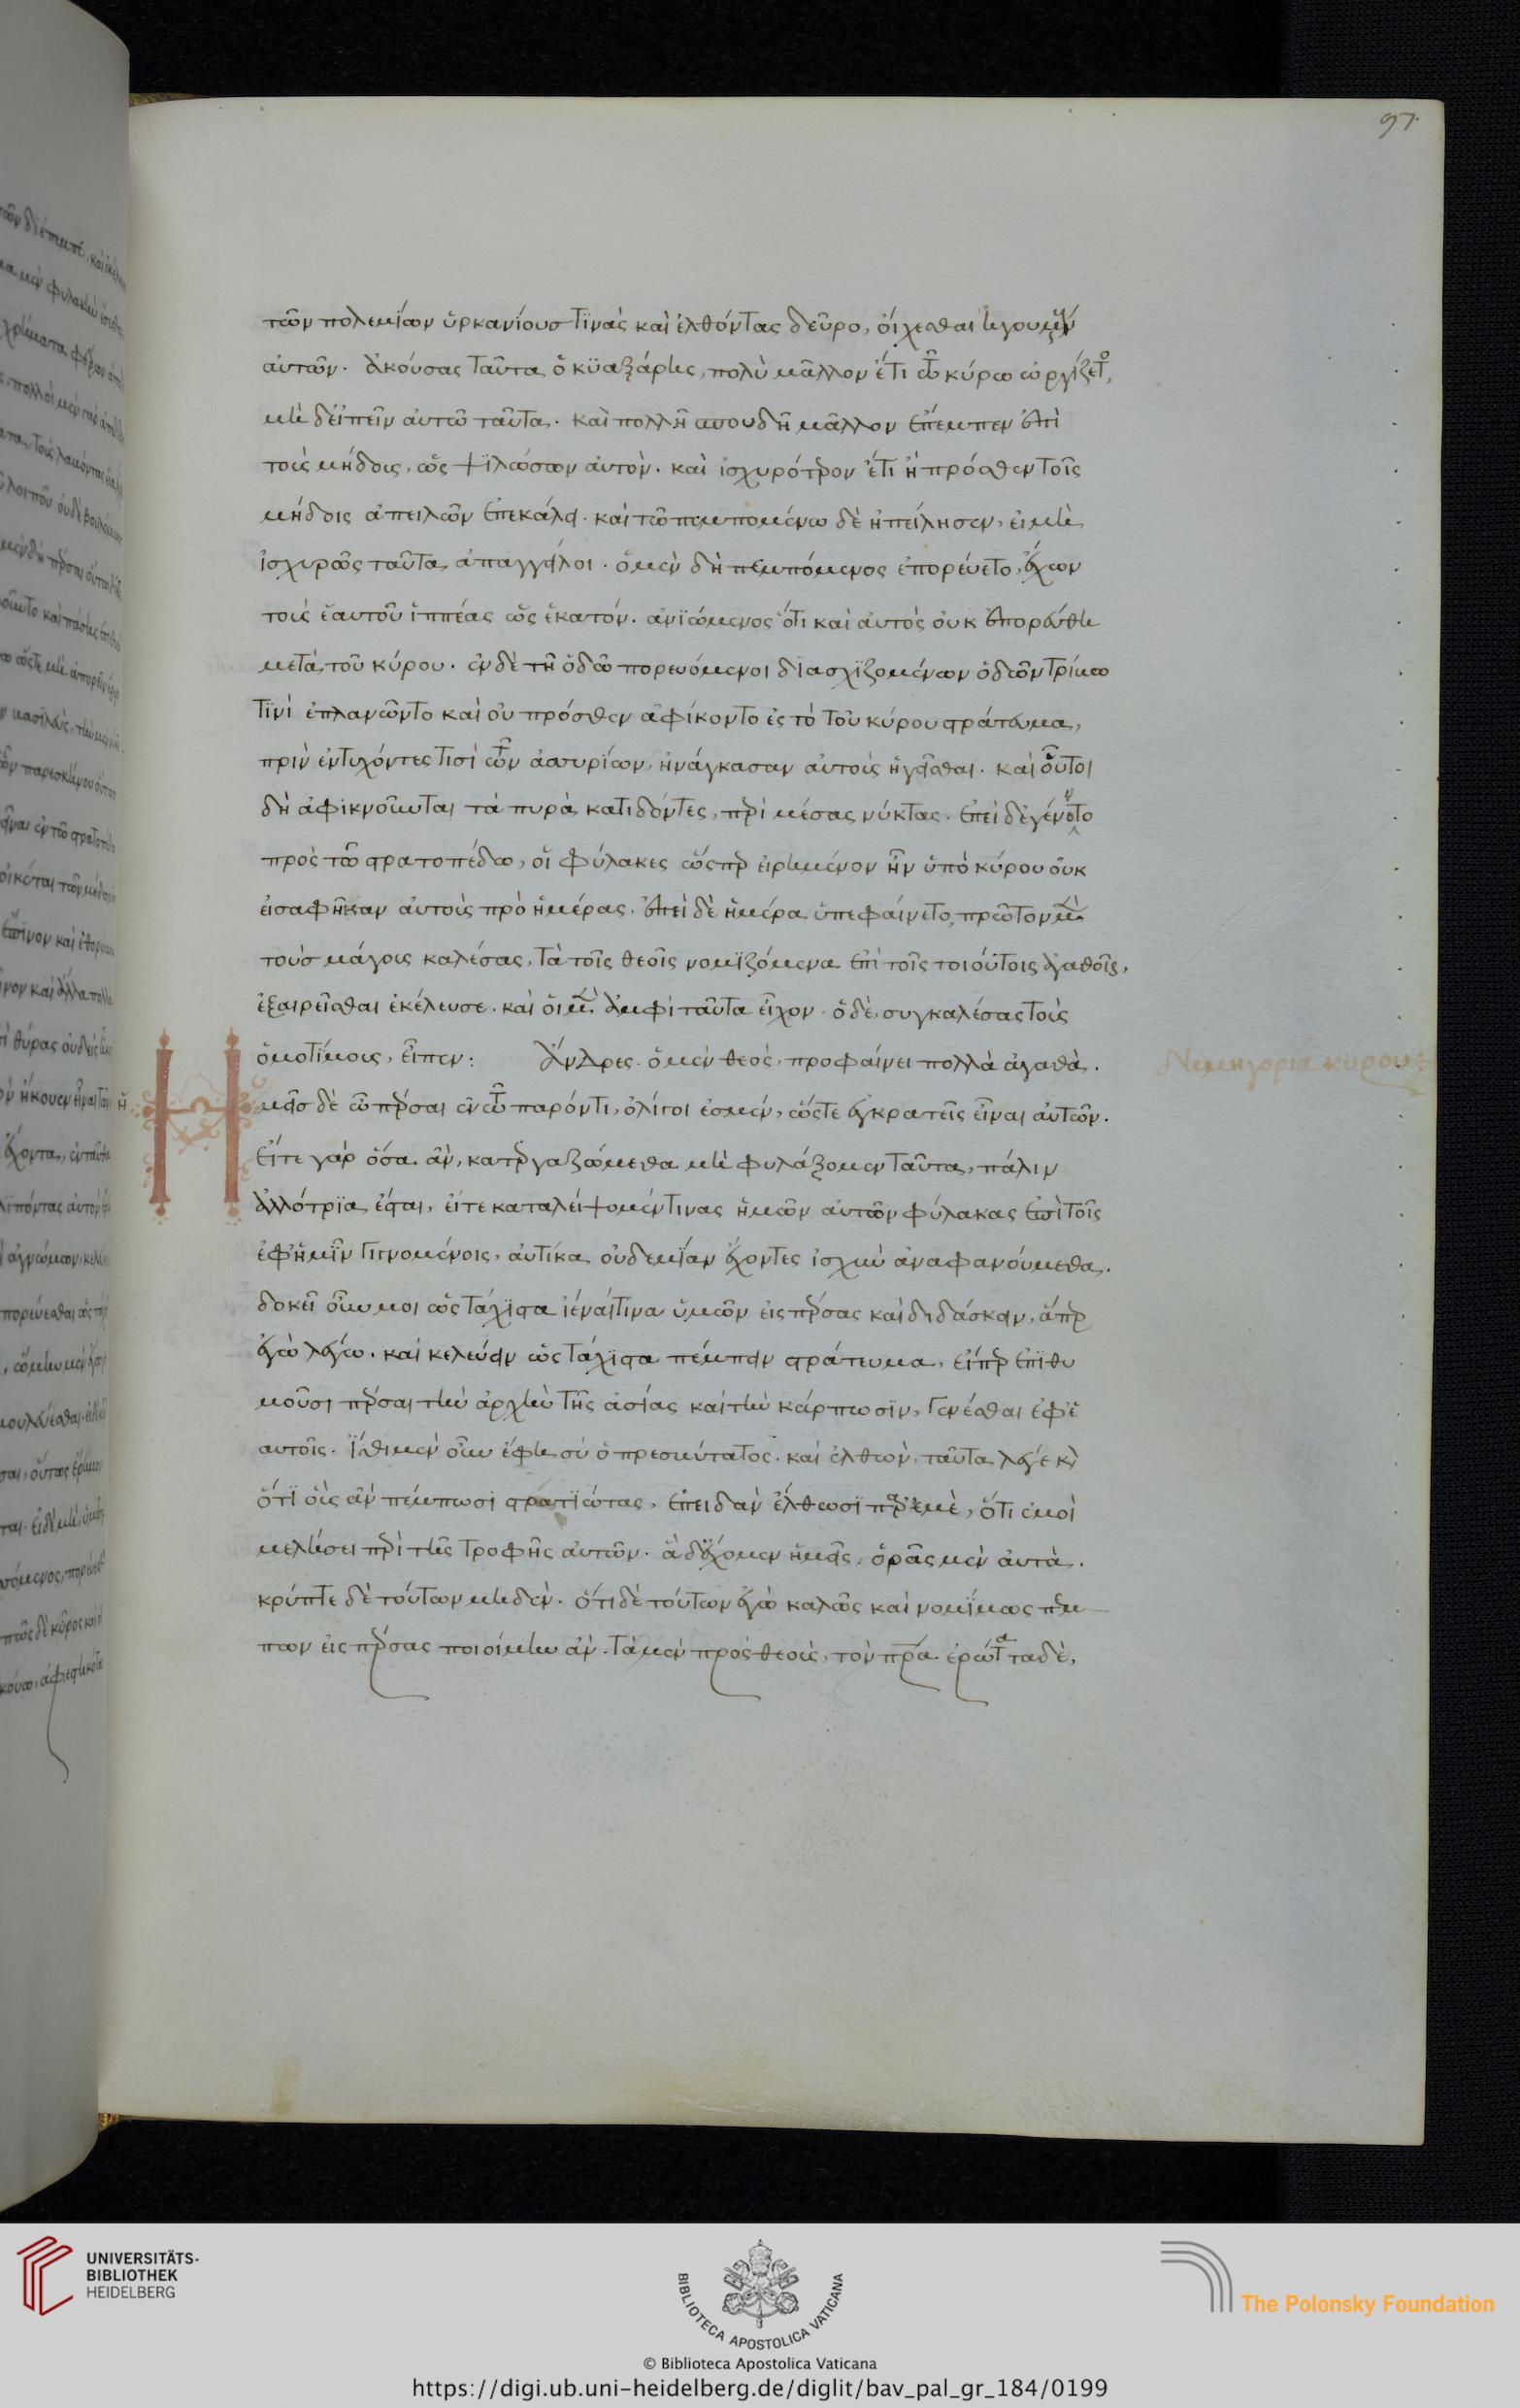 97
τῶν πολεμίων ὑρκανίους τϊνὰς καὶ ἐλθόντας δεῦρο, οἴχεσθαι ἡγουμένων
αὐτῶν. ἀκούσας ταῦτα ὁ κϋαξάρης, πολὺ μᾶλλον ἔτι τῶ κύρω ὠργίζετο,
μὴ δ' εἰπεῖν αὐτῶ ταῦτα. καὶ πολλῆ σπουδῆ μᾶλλον ἔπεμπεν ἐπὶ
τοὺς μήδους, ὡς ψϊλώσων αὐτὸν. καὶ ἰσχυρότερον ἔτι ἢ πρόσθεν τοῖς
μήδοις ἀπειλῶν ἐπεκάλει. καὶ τῶ πεμπομένω δὲ ἠπείλησεν, εἰ μὴ
ἰσχυρῶς ταῦτα ἀπαγγέλοι. ὁ μὲν δὴ πεμπόμενος ἐπορεύετο, ἔχων
τοὺς ἑαυτοῦ ἱππέας ὡς ἑκατόν. ἀνϊώμενος ὅτι καὶ αὐτὸς οὐκ ἐπορεύθη
μετὰ τοῦ κύρου. ἐν δὲ τῆ ὁδῶ πορευόμενοι δϊασχϊζομένων ὁδῶν τρίμω
τϊνὶ ἐπλανῶντο καὶ οὐ πρόσθεν ἀφίκοντο ἐς τὸ τοῦ κύρου στράτευμα,
πρὶν ἐντυχόντες τισὶ τῶν ἀσσυρίων, ἠνάγκασαν αὐτοὺς ἡγεῖσθαι. καὶ οὗτοι
δὴ ἀφικνοῦνται τὰ πυρὰ κατιδόντες, περὶ μέσας νύκτας. ἐπεὶ δ' ἐγένοντο
πρὸς τῶ στρατοπέδω, οἱ φύλακες ὥσπερ εἰρημένον ἦν ὑπὸ κύρου οὐκ
εἰσαφῆκαν αὐτοὺς πρὸ ἡμέρας. ἐπεὶ δὲ ἡμέρα ὑπεφαίνετο, πρῶτον μὲν
τοὺς μάγους καλέσας, τὰ τοῖς θεοῖς νομϊζόμενα ἐπὶ τοῖς τοιούτοις ἀγαθοῖς,
ἐξαιρεῖσθαι ἐκέλευσε. καὶ οἱ μὲν ἀμφὶ ταῦτα εἶχον. ὁ δὲ, συγκαλέσας τοὺς
ὁμοτίμους, εἶπεν: Ἄνδρες. ὁ μὲν θεὸς, προφαίνει πολλὰ ἀγαθὰ.
Δημηγορία κύρου:
Ἡμεῖς δὲ ὦ πέρσαι ἐν τῶ παρόντι, ὀλίγοι ἐσμέν, ὥστε ἐγκρατεῖς εἶναι αὐτῶν.
Εἴτε γὰρ ὅσα ἂν, κατεργαζώμεθα μὴ φυλάξομεν ταῦτα, πάλιν
ἀλλότρϊα ἔσται, εἴτε καταλείψομέν τινας ἡμῶν αὐτῶν φύλακας ἐπὶ τοῖς
ἐφ' ἡμῖν γιγνομένοις, αὐτίκα οὐδεμΐαν ἔχοντες ἰσχὺν ἀναφανούμεθα.
δοκεῖ οὖν μοι ὡς τάχϊστα ἰέναι τινα ὑμῶν εἰς πέρσας καὶ διδάσκειν, ἅπερ
ἐγὼ λέγω. καὶ κελεύειν ὡς τάχϊστα πέμπειν στράτευμα, εἴπερ ἐπϊθυ
μοῦσι πέρσαι τὴν ἀρχὴν τῆς ἀσίας καὶ τὴν κάρπωσϊν, γενέσθαι ἐφ' ἑ
αυτοῖς. ἴθι μὲν οὖν ἔφη σὺ ὁ πρεσβύτατος. καὶ ἐλθὼν, ταῦτα λέγε καὶ
ὅτϊ οὓς ἂν πέμπωσι στρατϊώτας, ἐπειδὰν ἔλθωσϊ παρ' ἐμὲ, ὅτι ἐμοὶ
μελήσει περὶ τῆς τροφῆς αὐτῶν. ἃ δ' ἔχομεν ἡμεῖς, ὁρᾶς μὲν αὐτὰ.
κρύπτε δὲ τούτων μηδὲν. ὅτι δὲ τούτων ἐγὼ καλῶς καὶ νομΐμως πέμ
πων εἰς πέρσας ποιοίμην ἂν. τὰ μὲν πρὸς θεοὺς, τὸν πρα ἐρώτα τα δὲ,
UNIVERSITÄTS-
BIBLIOTHEK
HEIDELBERG
BIBLIOTECA APOSTOLICA VATICANA
The Polonsky Foundation
© Biblioteca Apostolica Vaticana
https://digi.ub.uni-heidelberg.de/diglit/bav_pal_gr_184/0199